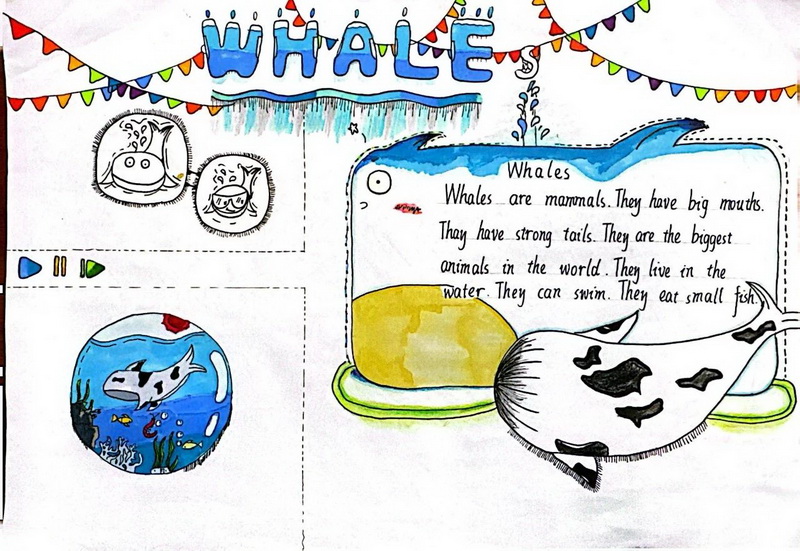 WHALES
Whales
Whales are mammals. They have big mouths.
Thay have strong tails. They are the biggest
animals in the world. They live in the
water. They can swim. They eat small fish.